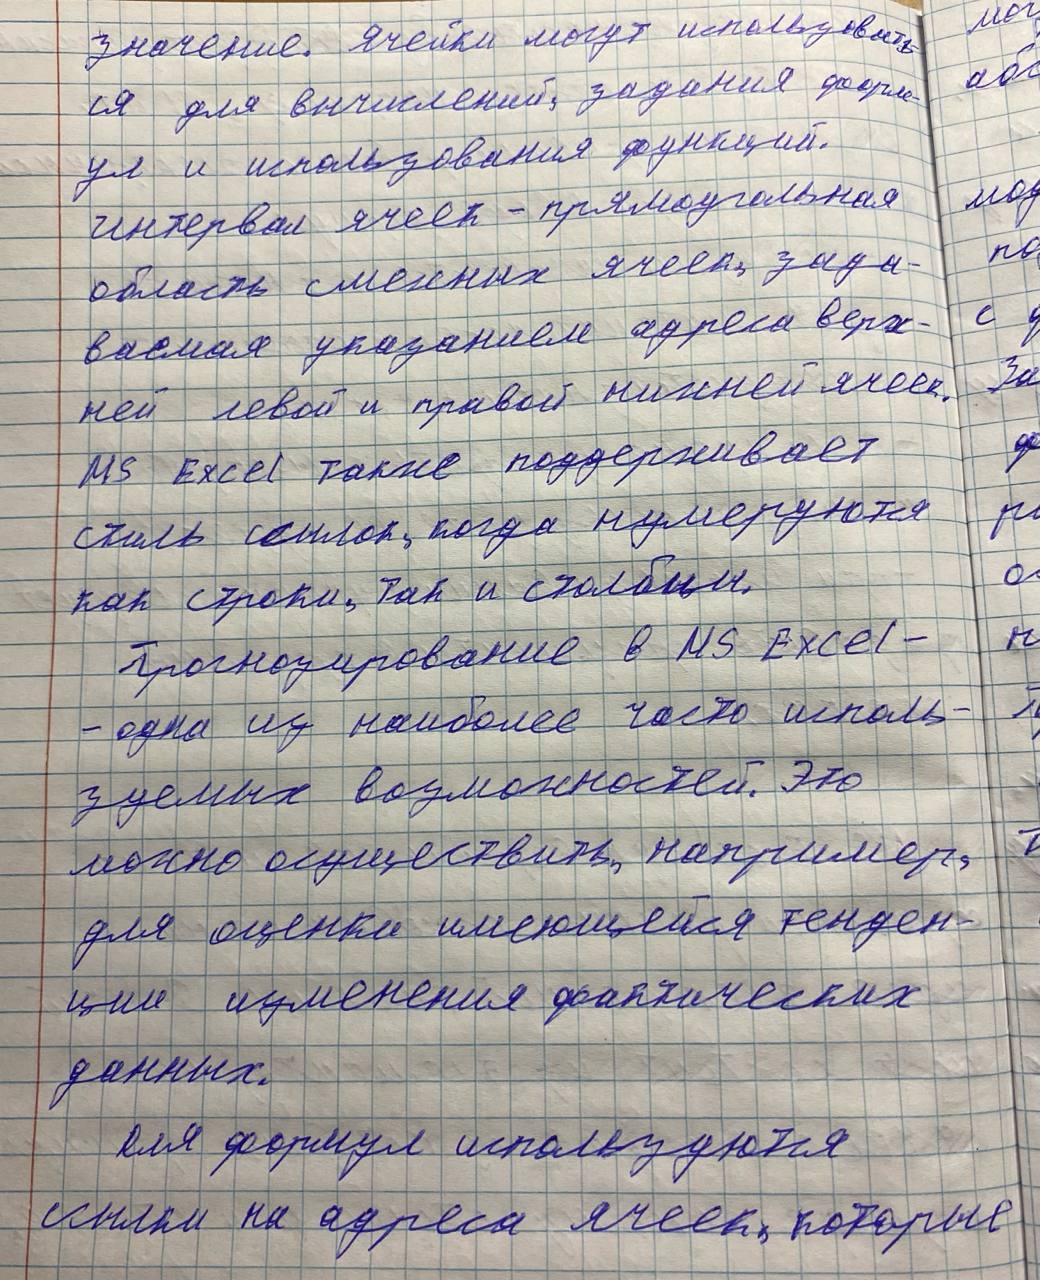 значение. Ячейки могут использовать-
ся для вычислений, задания форм-
ул и использования функций.
Интервал ячеек - прямоугольная
область смежных ячеек, зада-
ваемая указанием адреса верх-
ней левой и правой нижней ячеек.
MS Excel также поддерживает
стиль ссылок, когда нумеруются
как строки, так и столбцы.
Прогнозирование в MS Excel -
- одна из наиболее часто исполь-
зуемых возможностей. Это
можно осуществить, например,
для оценки имеющейся тенден-
ции изменения фактических
данных.
Для формул используются
ссылки на адреса ячеек, которые